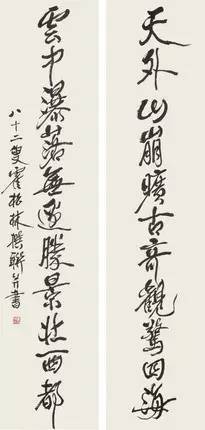 天外山崩曠古奇觀驚四海
雲中瀑落無邊勝景壯西都
八十二叟霍松林撰聯并書